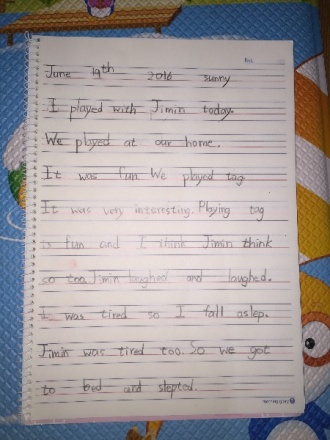 June 19th 2016 sunny
I played with Jimin today.
We played at our home.
It was fun. We played tag
It was very interesting. Playing tag
is fun and I think Jimin think
so too. Jimin laughed and laughed.
I was tired so I fall aslep.
Jimin was tired too. So we got
to bed and slepted.